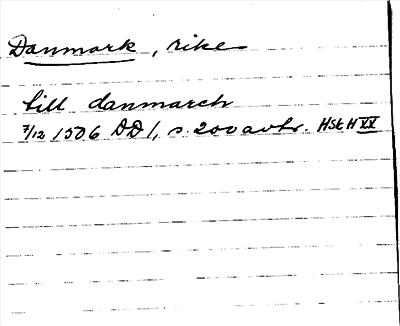 Danmark, rike
till danmarch
7/12 1506 DD 1, s. 200 avtr. HSH XX